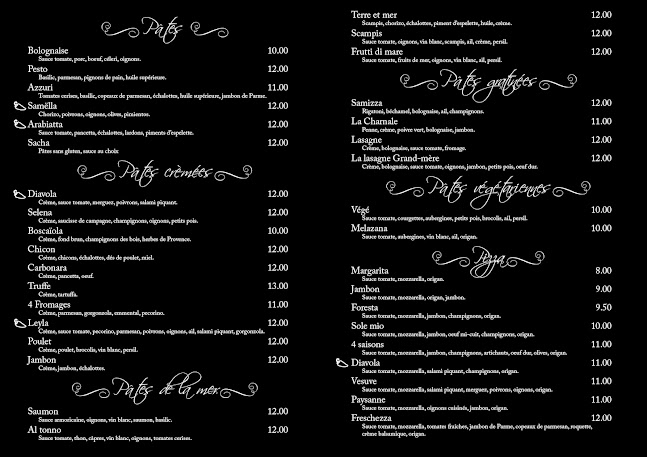 Pâtes
Bolognaise 10.00
Sauce tomate, porc, boeuf, céleri, oignons.
Pesto 12.00
Basilic, parmesan, pignons de pain, huile supérieure.
Azzuri 11.00
Tomates cerises, basilic, copeaux de parmesan, échallottes, huile supérieure, jambon de Parme.
Samëlla 12.00
Chorizo, poivrons, oignons, olives, pimientos.
Arabiatta 12.00
Sauce tomate, pancetta, échallottes, lardons, piments d'espelette.
Sacha 12.00
Pâtes sans gluten, sauce au choix
Pâtes crèmées
Diavola 12.00
Crème, sauce tomate, merguez, poivrons, salami piquant.
Selena 12.00
Crème, saucisse de campagne, champignons, oignons, petits pois.
Boscaïola 10.00
Crème, fond brun, champignons des bois, herbes de Provence.
Chicon 12.00
Crème, chicons, échallottes, dés de poulet, miel.
Carbonara 12.00
Crème, pancetta, oeuf.
Truffe 13.00
Crème, tartuffa.
4 Fromages 11.00
Crème, parmesan, gorgonzola, emmental, pecorino.
Leyla 12.00
Crème, sauce tomate, pecorino, parmesan, poivrons, oignons, ail, salami piquant, gorgonzola.
Poulet 12.00
Crème, poulet, brocolis, vin blanc, persil.
Jambon 12.00
Crème, jambon, échallottes.
Pâtes de la mer
Saumon 12.00
Sauce armoricaine, oignons, vin blanc, saumon, basilic.
Al tonno 12.00
Sauce tomate, thon, câpres, vin blanc, oignons, tomates cerises.
Terre et mer 12.00
Scampis, chorizo, échallottes, piment d'espelette, huile, crème.
Scampis 12.00
Sauce tomate, oignons, vin blanc, scampis, ail, crème, persil.
Frutti di mare 12.00
Sauce tomate, fruits de mer, oignons, vin blanc, ail, persil.
Pâtes gratinées
Samizza 12.00
Rigatoni, béchamel, bolognaise, ail, champignons.
La Charnale 11.00
Penne, crème, poivre vert, bolognaise, jambon.
Lasagne 12.00
Crème, bolognaise, sauce tomate, fromage.
La lasagne Grand-mère 12.00
Crème, bolognaise, sauce tomate, oignons, jambon, petits pois, oeuf dur.
Pâtes végétariennes
Végé 10.00
Sauce tomate, courgettes, aubergines, petits pois, brocolis, ail, persil.
Melazana 10.00
Sauce tomate, aubergines, vin blanc, ail, origan.
Pizza
Margarita 8.00
Sauce tomate, mozzarella, origan.
Jambon 9.00
Sauce tomate, mozzarella, origan, jambon.
Foresta 9.50
Sauce tomate, mozzarella, jambon, champignons, origan.
Sole mio 10.00
Sauce tomate, mozzarella, jambon, oeuf mi-cuit, champignons, origan.
4 saisons 11.00
Sauce tomate, mozzarella, jambon, champignons, artichauts, oeuf dur, olives, origan.
Diavola 11.00
Sauce tomate, mozzarella, salami piquant, champignons, origan.
Vesuve 11.00
Sauce tomate, mozzarella, salami piquant, merguez, poivrons, oignons, origan.
Paysanne 11.00
Sauce tomate, mozzarella, oignons cuisinés, jambon, origan.
Freschezza 12.00
Sauce tomate, mozzarella, tomates fraiches, jambon de Parme, copeaux de parmesan, roquette,
crème balsamique, origan.